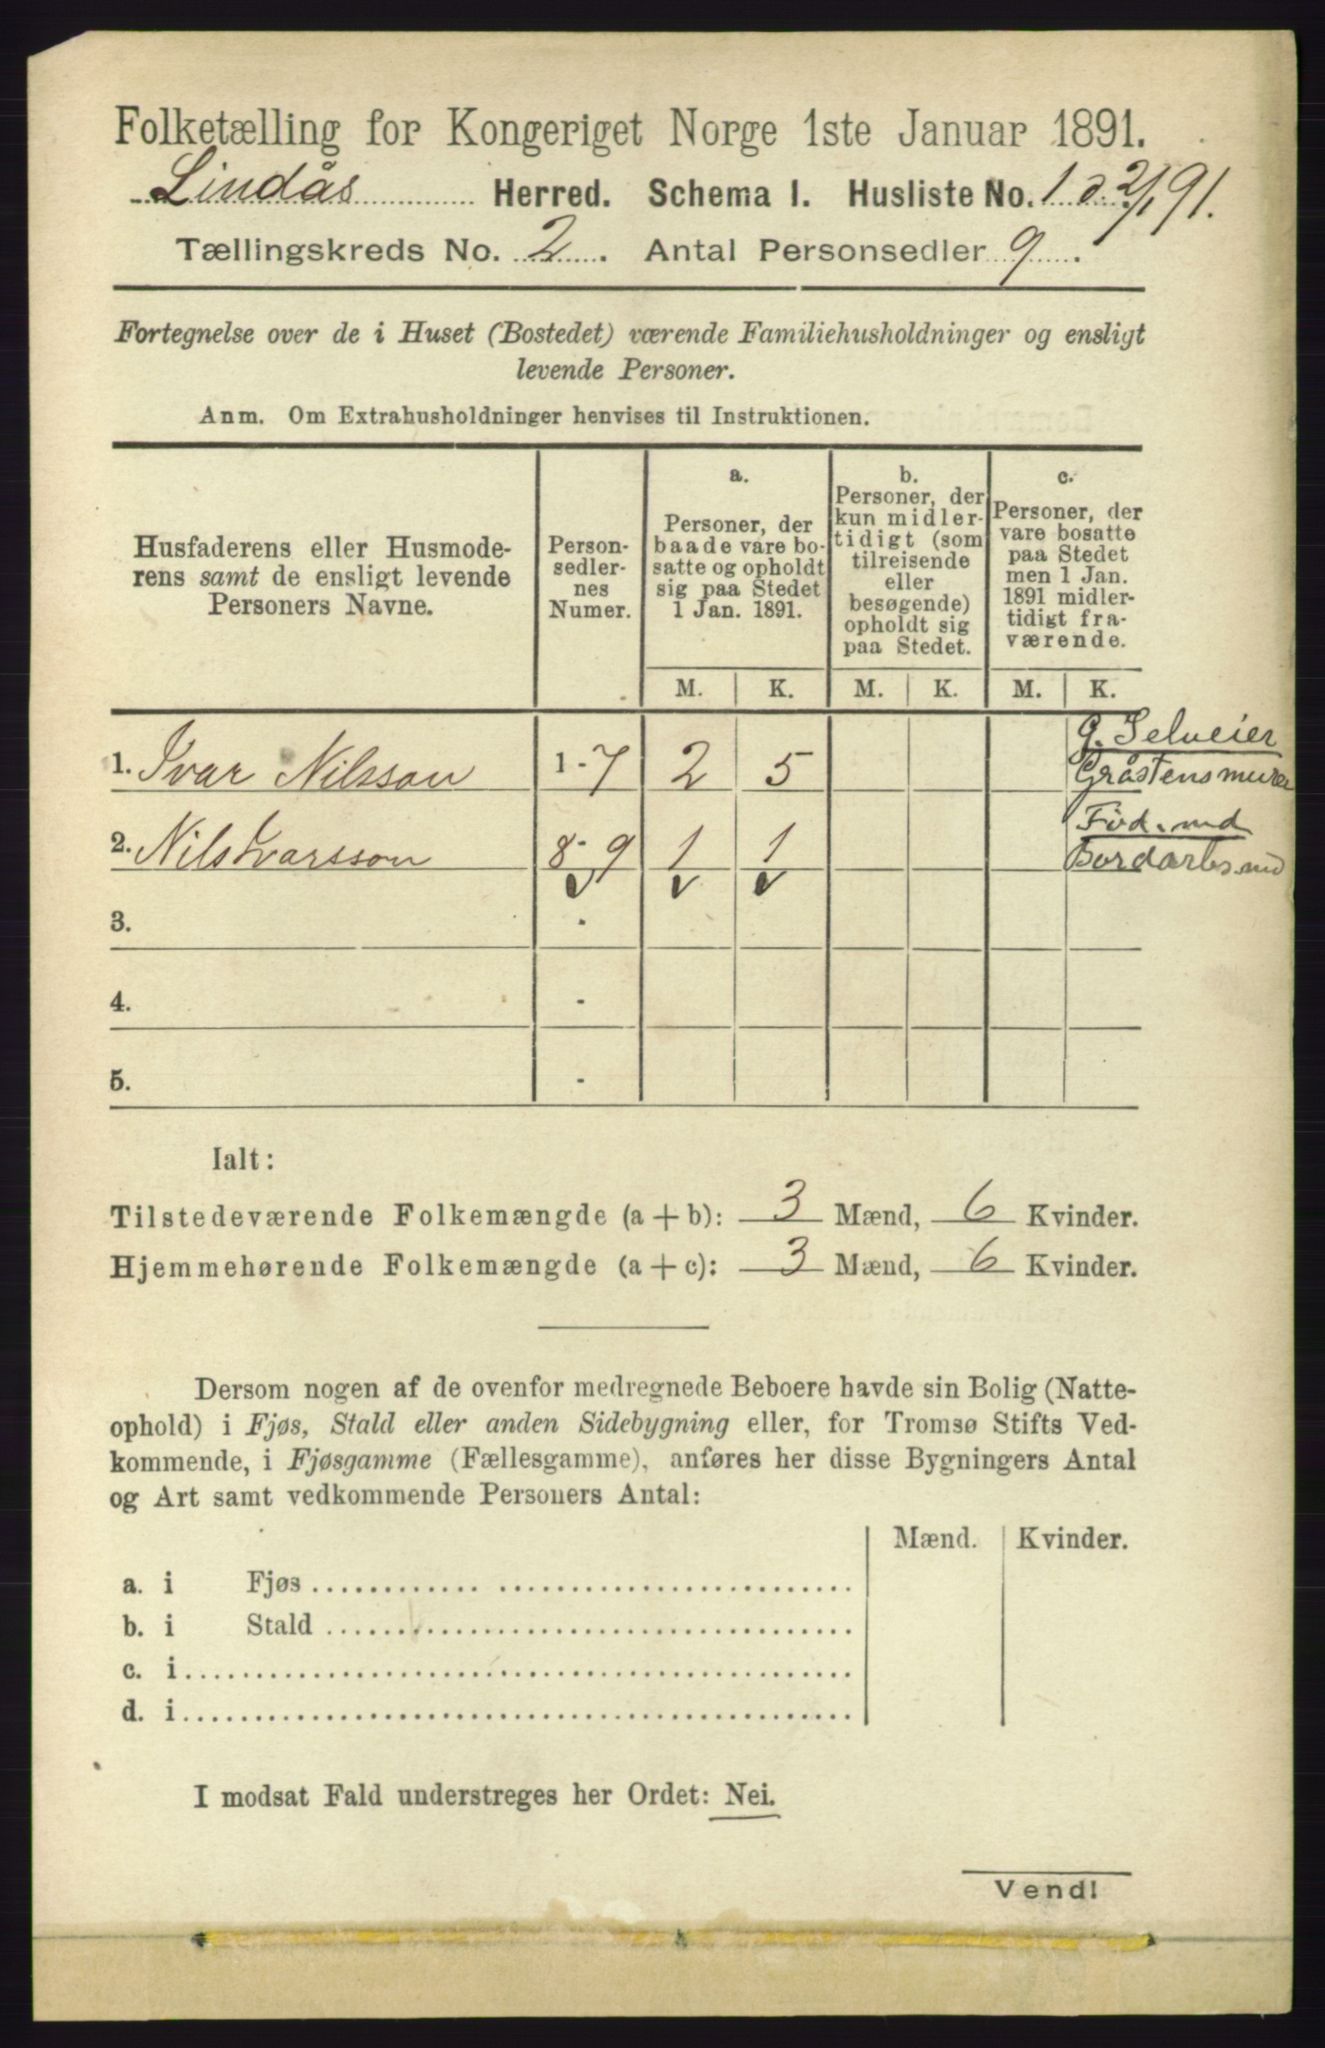 Folketælling for Kongeriget Norge 1ste Januar 1891.
Lindås Herred. Schema I. Husliste No. 1 d. 2/1 91.
Tællingskreds No. 2. Antal Personsedler 9.
Fortegnelse over de i Huset (Bostedet) værende Familiehusholdninger og ensligt
levende Personer.
Anm. Om Extrahusholdninger henvises til Instruktionen.
Husfaderens eller Husmode-
rens samt de ensligt levende
Personers Navne.
Person-
sedler-
nes
Numer.
a.
Personer, der
baade vare bo-
satte og opholdt
sig paa Stedet
1 Jan. 1891.
b.
Personer, der
kun midler-
tidigt (som
tilreisende
eller
besøgende)
opholdt sig
paa Stedet.
c.
Personer, der
vare bosatte
paa Stedet
men 1 Jan.
1891 midler-
tidigt fra-
værende.
M. K. M. K. M. K.
G. Selveier
1. Ivar Nilsson 1-7 2 5 Gråstensmurer
Föd.md
2. Nils Ivarsson 8-9 1 1 Bordarbs.md
3. -
4. -
5. -
Ialt:
Tilstedeværende Folkemængde (a+b): 3 Mænd, 6 Kvinder.
Hjemmehørende Folkemængde (a+c): 3 Mænd, 6 Kvinder.
Dersom nogen af de ovenfor medregnede Beboere havde sin Bolig (Natte-
ophold) i Fjøs, Stald eller anden Sidebygning eller, for Tromsø Stifts Ved-
kommende, i Fjøsgamme (Fællesgamme), anføres her disse Bygningers Antal
og Art samt vedkommende Personers Antal:
Mænd. Kvinder.
a. i Fjøs
b. i Stald
c. i
d. i
I modsat Fald understreges her Ordet: Nei.
Vend!